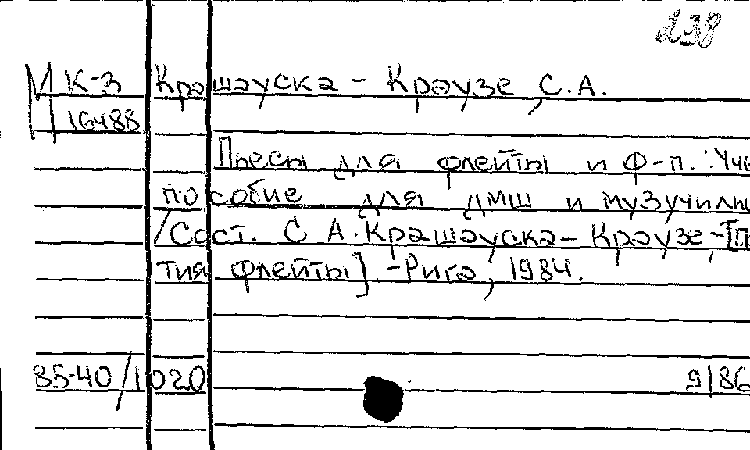 238
М К-3 Крашауска - Краузе, С.А.
П 16488
Пьесы для флейты и ф-п.: Уче
пособие для ДМШ и музучилищ
/Сост. С. А. Крашауска - Краузе. - [П
тия флейты] - Рига, 1984.
85-40/1020 9/86